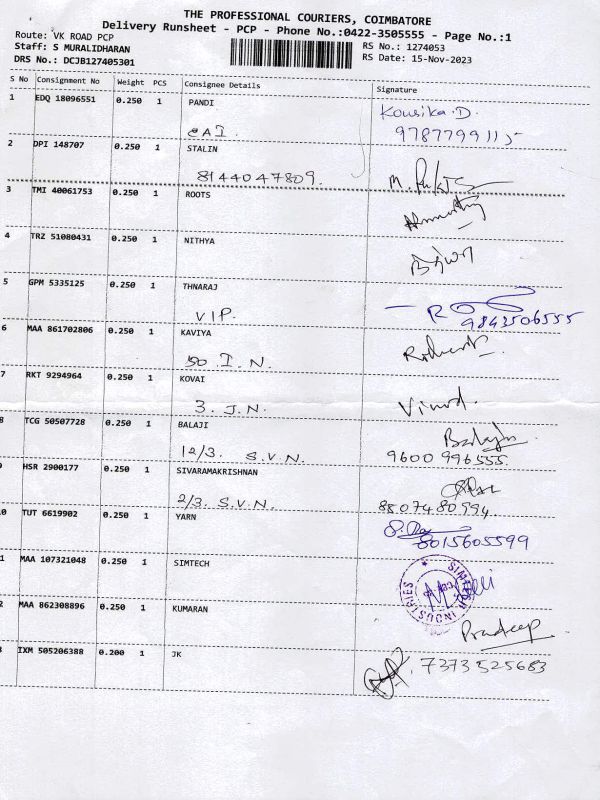 THE PROFESSIONAL COURIERS, COIMBATORE
Delivery Runsheet - PCP - Phone No.:0422-3505555 - Page No.:1
Route: VK ROAD PCP
Staff: S MURALIDHARAN
RS No.: 1274053
DRS No.: DCJB127405301
RS Date: 15-Nov-2023
S No Consignment No Weight PCS Consignee Details Signature
1 EDQ 18096551 0.250 1 PANDI Kousika.D.
9787799115
2 DPI 148707 0.250 1 STALIN
8144047809.
3 TMI 40061753 0.250 1 ROOTS
4 TRZ 51080431 0.250 1 NITHYA
5 GPM 5335125 0.250 1 THNARAJ
VIP. 9843506555
6 MAA 861702806 0.250 1 KAVIYA
50 I.N.
7 RKT 9294964 0.250 1 KOVAI
3. J.N. Vinod.
8 TCG 50507728 0.250 1 BALAJI Balaji
12/3. S.V.N. 9600 996555.
9 HSR 2900177 0.250 1 SIVARAMAKRISHNAN
2/3. S.V.N. 8807480994.
0 TUT 6619902 0.250 1 YARN
8015605599
1 MAA 107321048 0.250 1 SIMTECH
SIMTECH INDUSTRIES
2 MAA 862308896 0.250 1 KUMARAN Pradeep
3 IXM 505206388 0.200 1 JK 7373525683